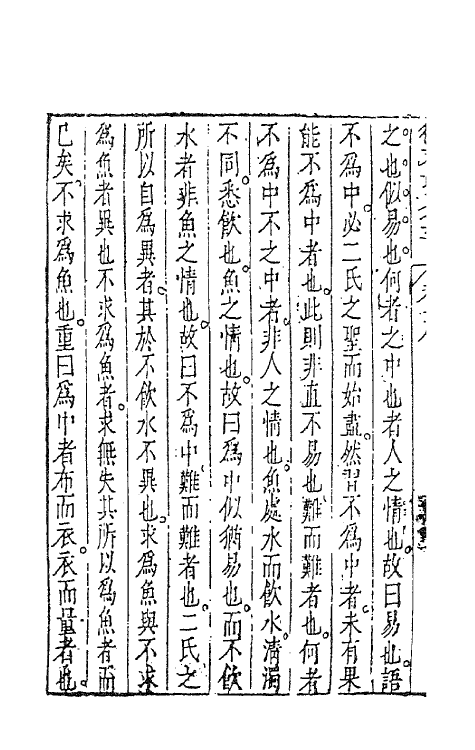 之也似易也何者之中也者人之情也故曰易也語
不爲中必二氏之聖而始盡然習不爲中者未有果
能不爲中者也此則非直不易也難而難者也何者
不爲中不之中者非人之情也魚處水而飲水清濁
不同悉飲也魚之情也故曰爲中似猶易也而不飲
水者非魚之情也故曰不爲中難而難者也二氏之
所以自爲異者其於不飲水不異也求爲魚與不求
爲魚者異也不求爲魚者求無失其所以爲魚者而
已矣不求爲魚也重曰爲中者布而衣衣而量者也